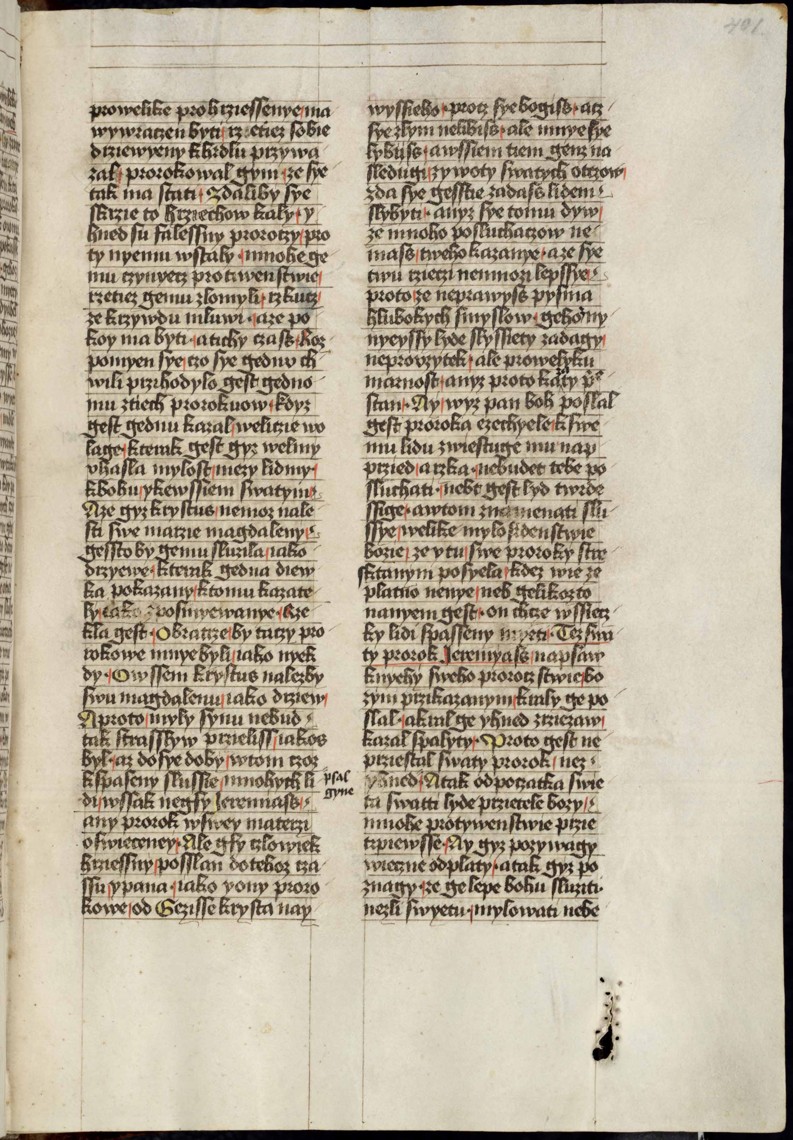 prowelike prohrziessenye ma
wywratzen byti tzetiez sobie
dziewyeny k hrdlu przywa
zal prorokowal gym ze sye
tak ma stati Zdaliby sye
skrzie to hrziechow kaly y
hned su falessny prorotzy pro
ty nyemu wstaly mnohe ge
mu czynyecz protiwenstwie
rzetiez gemu zlomyli rzkucz
ze krzywdu mluwi aze po
koy ma byti a tichy czass Roz
pomyen sye czo sye gednu ch
wili przihodylo gest gedno
mu ztiech prorokuow kdyz
gest gednu kazal welitzie wo
lage kterak gest gyz welmy
vhasla mylost mezy lidmy
k bohu y ke wssiem swatym
Aze gyz krystus nemoz nale
sti swe matzie magdaleny
gessto by gemu sluzila iako
drzyewe kterak gedna diew
ka pokazany k tomu kazate
ly iako zposmyewanye Rze
kla gest Obratze by tatzy pro
rokowe mnye byli iako nyek
dy Owssem krystus nalezby
swu magdalenu iako drziew
A proto myly synu nebud
tak strasslyw przieliss iakos
byl az do sye doby w tom czoz
k spaseny slussie mnohych li
di wssak negsy Jeremiass
any prorok w swey materzi
oswieceney Ale gsy czlowiek
hrziessny posslan do tehoz cza
ssu y pana iako y ony proro
kowe od Gezisse krysta nay
psal
gyne
wyssieho protz sye bogiss atz
sye zlym nelibiss ale mnye sye
lybiss a wssiem tiem genz na
sledugi zywoty swatych otczow
zda sye gesstie zadass lidem
slybyti anyz sye tomu dyw
ze mnoho posluchaczow ne
mass tweho kazanye aze sye
twu rzieczi nemnozi lepssye
proto ze neprawyss pysma
hlubokych smyslow gehozny
nyeyssy lyde slyssiety zadagy
neprovzytek ale prowelyku
marnost anyz proto kazy
stan Ay wyz pan boh poslal
gest proroka ezechyele k swe
mu lidu zwiestuge mu nap
przied a rzka nebudet tebe po
sluchati nebt gest lyd twrde
ssige a w tom znamenati slu
ssye welike mylosrdenstwie
bozie ze y tu swe proroky stre
sktanym posyela kdez wie ze
platno nenye neb gelikozto
nanyem gest on chcze wssiecz
ky lidi spasseny myeti Tez swa
ty prorok Jeremyass napsaw
knyehy sweho prorocztwie bo
zym przikazanym kraly ge po
slal a kral ge yhned zrziezaw
kazal spalyty Proto gest ne
przestal swaty prorok nez
yhned Atak od poczatka swie
ta swatti lyde przietele bozy
mnohe protywenstwie przie
trpiewsse Ay gyz pozywagy
wieczne odplaty a tak gyz po
znagy ze ge lepe bohu sluziti
nezli swyetu mylowati nebe